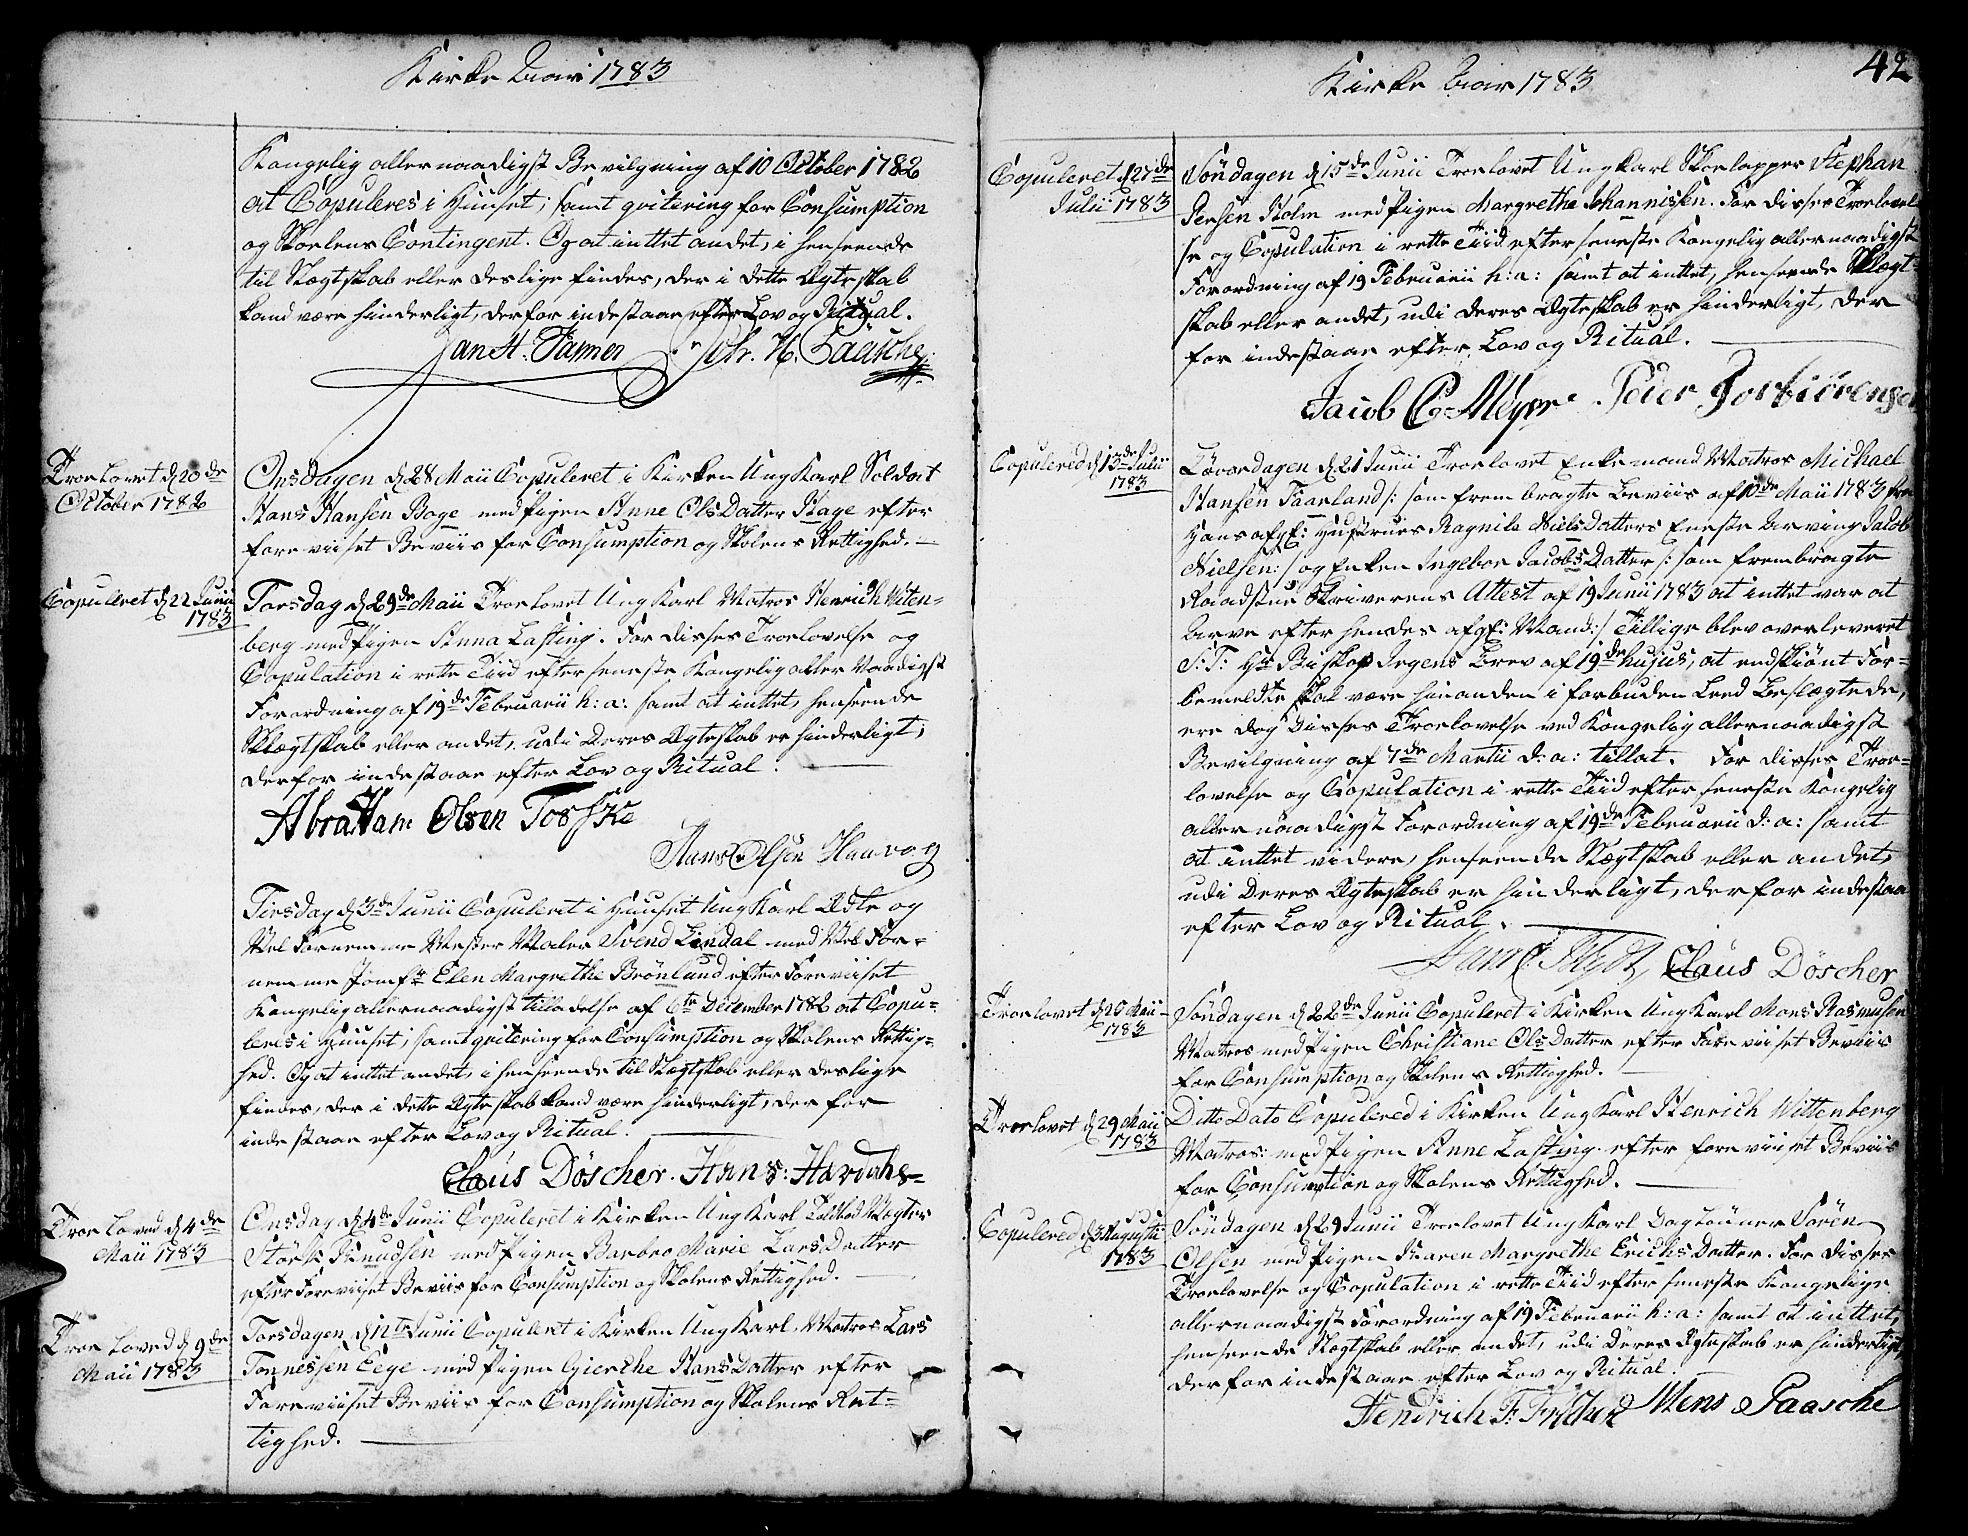 Kirke Aar 1783
Kongelig allernaadigst Bevilgning af 10 October 1782
at Copuleres i Huuset; samt qvitering for Consumption
og Skolens Contingent. Og at inttet andet, i henseende
til Slægtskab eller deslige findes, der i dette Ægteskab
kand være hinderligt, derfor indestaar efter Lov og Ritual.
Jan H. Joh. H. Paasche
Troelovet d 20de
October 1782
Onsdagen d 28 Maii Copuleret i Kirken Ung Karl Soldat
Hans Hansen Boge med Pigen Anne OlsDatter Hage efter
foreviiset Beviis for Consumption og Skolens Rettighed.
Copuleret d 22 Junii
1783
Torsdag d 29de Maii Troelovet Ung Karl Matros Henrich Witen-
berg med Pigen Anna Lasting. For disses Troelovelse og
Copulation i rette Tiid efter seneste Kongelig aller Naadigst
Forordning af 19de Februarii h: a: samt at inttet, henseende
Slægtskab eller andet, udi deres Ægteskab er hinderligt,
derfor indestaar efter Lov og Ritual.
Abraham Olsen Toske
Hans Olsen Haavog
Tirsdag d 3de Junii Copuleret i Huuset Ung Karl Ædle og
Vel Fornemme Mester Maler Svend Lindal med Vel For-
nemme Jomfr Elen Margrethe Brønlund efter Foreviiset
Kongelig allernaadigst tilladelse af 6te December 1782 at Copu-
leres i Huuset, samt qvitering for Consumption og Skolens Rettig-
hed. Og at inttet andet, i henseende til Slægtskab eller deslige
findes, der i dette Ægteskab kand være hinderligt, der for
indestaar efter Lov og Ritual.
Claus Döscher. Hans:
Troeloved d 4de
Maii 1783
Onsdag d 4de Junii Copuleret i Kirken Ung Karl Vægter
Størk Knudsen med Pigen Barbro Marie LarsDatter
efter Foreviiset Beviis for Consumption og Skolens Rettighed.
Troeloved d 9de
Maii 1783
Torsdagen d 12te Junii Copuleret i Kirken Ung Karl Matros Lars
Tonnessen Eege med Pigen Gierthe HansDatter efter
Foreviiset Beviis for Consumption og Skolens Ret-
tighed.
Kirke Aar 1783
42
Copuleret d 27de
Julii 1783
Søndagen d 15de Junii Troelovet Ung Karl Skoelapper Stephan
Persen Holm med Pigen Margrethe Johannissen. For disses Troelovel
se og Copulation i rette Tiid efter seneste Kongelig allernaadigst
Forordning af 19 Februarii h: a: samt at inttet, henseende Slægt-
skab eller andet, udi deres Ægteskab er hinderligt, der
for indestaar efter Lov og Ritual.
Jacob C Meyer Peder
Copulered d 13de Julii
1783
Løverdagen d 21 Junii Troelovet Enkemand Matros Michael
Hansen Faarland /: som frembragte Beviis af 10de Maii 1783 fra
Hans afgl: Hustrues Ragnile NielsDatters Eneste Arving Jacob
Nielsen :/ og Enken Ingebor JacobsDatter /: som frembragte
Raadstue Skriverens Attest af 19 Junii 1783 at inttet var at
Arve efter hendes afgl: Mand :/ Tillige blev overleveret
S: T: Hr Biskop Irgens Brev af 19de hujus, at endskiønt For-
bemeldte skal være hinanden i forbuden Leed Beslægtede,
ere dog disses Troelovelse ved Kongelig allernaadigst
Bevilgning af 7de Martii d: a: tillat. For disses Troe-
lovelse og Copulation i rette Tiid efter seneste Kongelig
allernaadigst Forordning af 19de Februarii d: a: samt
at inttet videre, henseende Slægtskab eller andet,
udi deres Ægteskab er hinderligt, derfor indestaar
efter Lov og Ritual.
Claus Döscher
Troelovet d 20 Maii
1783
Søndagen d 22de Junii Copuleret i Kirken Ung Karl Mons Rasmusen
Matros med Pigen Christiane OlsDatter efter Foreviiset Beviis
for Consumption og Skolens Rettighed.
Troelovet d 29 Maii
1783
Ditto Dato Copulered i Kirken Ung Karl Henrich Wittenberg
Matros: med Pigen Anne Lasting. efter foreviiset Beviis
for Consumption og Skolens Rettighed.
Copulered d 3 Augustii
1783
Søndagen d 29 Junii Troelovet Ung Karl Dagløuner Søren
Olsen med Pigen Karen Margrethe ErichsDatter. For disses
Troelovelse og Copulation i rette Tiid efter seneste Kongelige
allernaadigst Forordning af 19 Februarii h: a: samt at inttet,
henseende Slægtskab eller andet, udi deres Ægteskab er hinderligt,
derfor indestaar efter Lov og Ritual.
Hendrich F: Mons Paasche